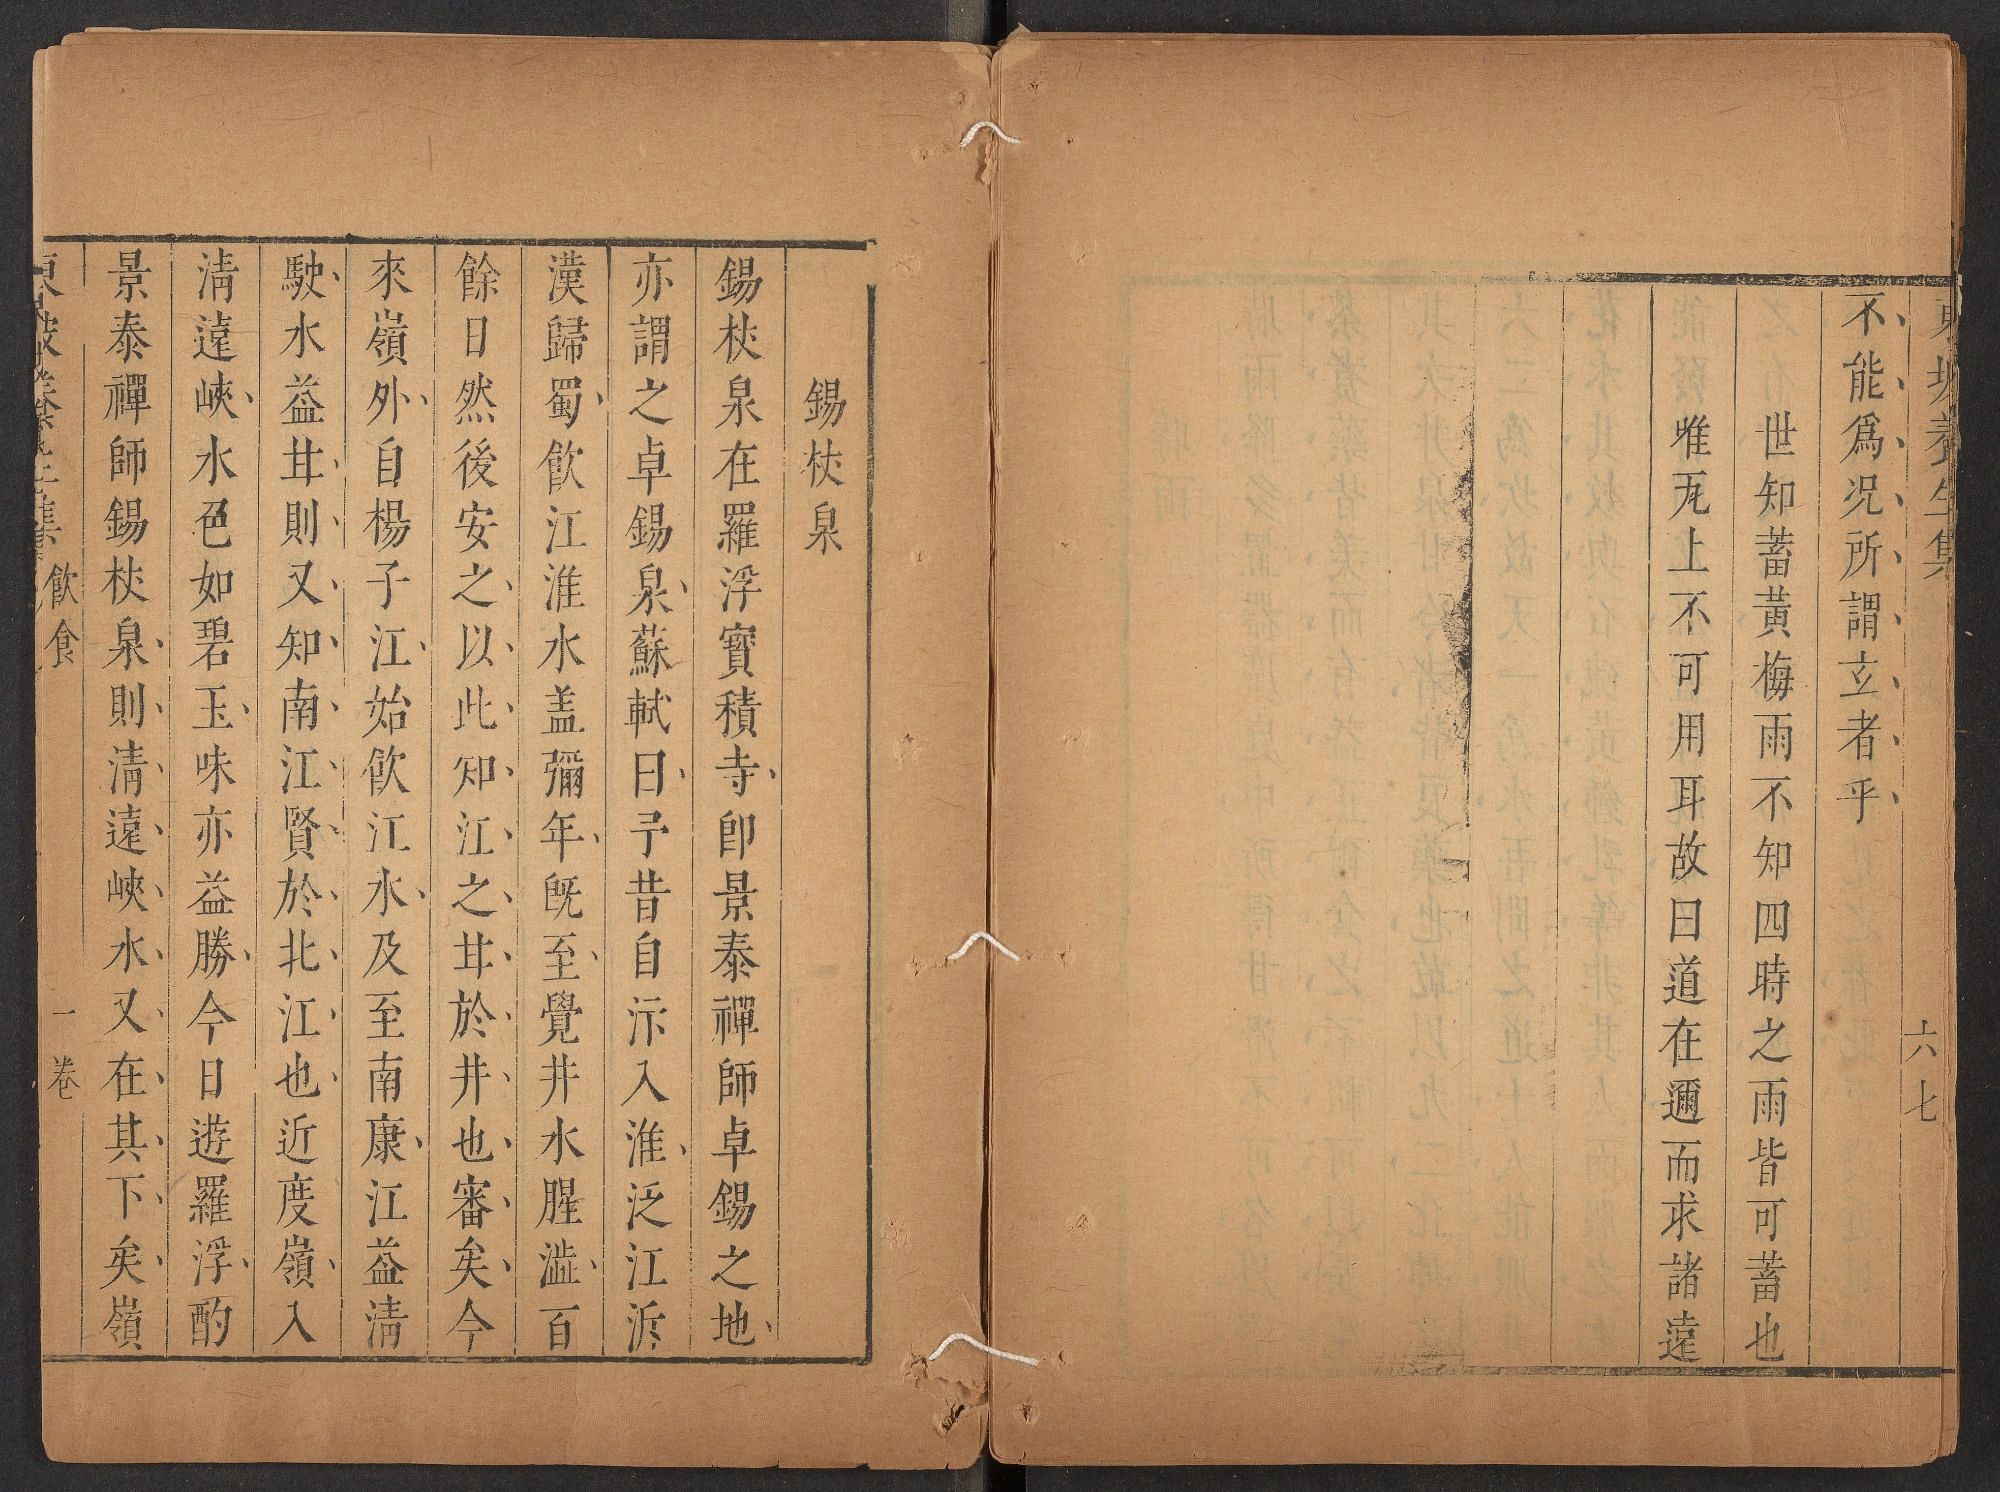 東坡養生集
六七
不能爲况所謂立者乎
世知蓄黃梅雨不知四時之雨皆可蓄也
唯瓦上不可用耳故曰道在邇而求諸遠
錫杖泉
錫杖泉在羅浮寶積寺卽景泰禪師卓錫之地
亦謂之卓錫泉蘇軾曰予昔自汴入淮泛江泝
漢歸蜀飮江淮水盖彌年旣至覺井水腥澁百
餘日然後安之以此知江之甘於井也審矣今
來嶺外自楊子江始飮江水及至南康江益淸
駛水益甘則又知南江賢於北江也近度嶺入
淸遠峽水色如碧玉味亦益勝今日遊羅浮酌
景泰禪師錫杖泉則淸遠峽水又在其下矣嶺
東坡養生集
飮食
一卷